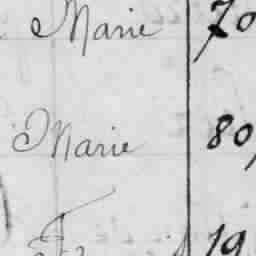 Marie 70
Marie 80,
19